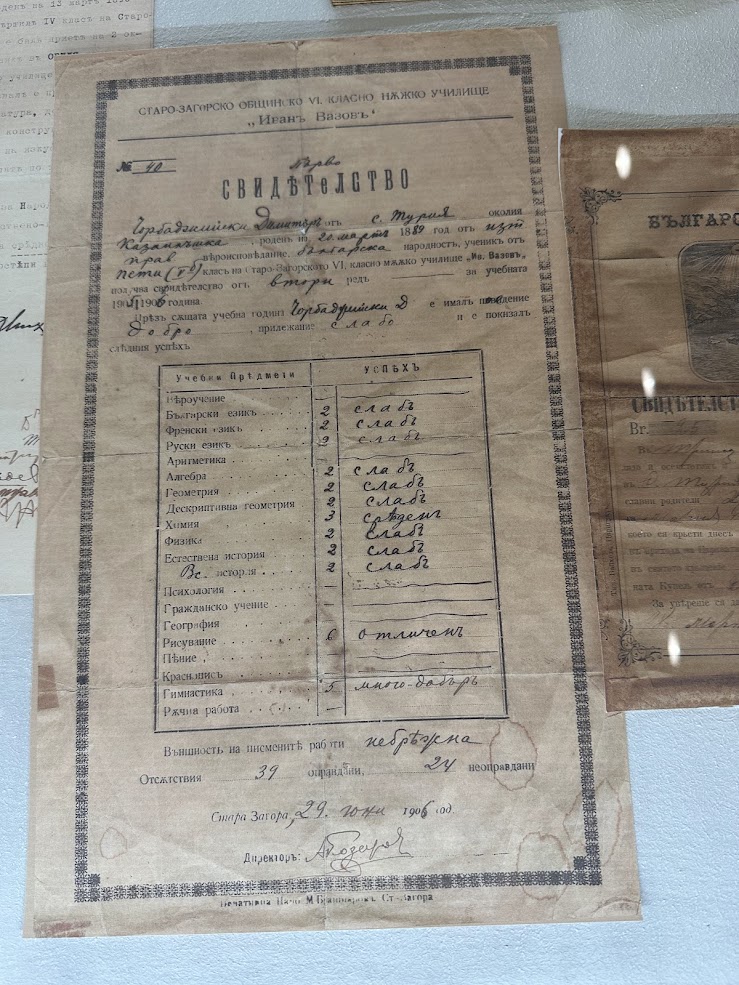 денъ на 13 мартъ
IV класъ на Старо-
СТАРО-ЗАГОРСКО ОБЩИНСКО VI. КЛАСНО МѪЖКО УЧИЛИЩЕ
„Иванъ Вазовъ“
№ 40
първо
СВИДѢТЕЛСТВО
Чорбаджийски Димитъръ отъ с. Турия околия
Казанлъшка, роденъ на 20 мартъ 1889 год от изт
прав вѣроисповѣдание, българска народностъ, ученикъ отъ
пети (V) класъ на Старо-Загорското VI. класно мѫжко училище „Ив. Вазовъ“,
получва свидѣтелство отъ втори редъ за учебната
1905/1906 година.
Прѣзъ сѫщата учебна година Чорбаджийски Д е ималъ поведение
добро, прилежание слабо и е показалъ
слѣдния успѣхъ.
Учебни Прѣдмети УСПѢХЪ
Вѣроучение —
Български езикъ 2 слабъ
Френски език 2 слабъ
Руски езикъ 2 слабъ
Аритметика —
Алгебра 2 слабъ
Геометрия 2 слабъ
Дескриптивна геометрия 2 слабъ
Химия 3 срѣденъ
Физика 2 слабъ
Естествена история 2 слабъ
Вс. история 2 слабъ
Психология —
Гражданско учение —
География —
Рисуване 6 отличенъ
Пѣние —
Краснописъ —
Гимнастика 5 много-добъръ
Рѫчна работа —
Външность на писменитѣ работи небрѣжна
Отсѫтствия 39 оправдани, 24 неоправдани
Стара Загора, 29. юни 1906 год.
Директоръ:
Печатница Ст.-Загора
БЪЛГАРС
СВИДѢТЕЛСТ
което си кръсти днесъ
ната Купель отъ
За увѣрение се да